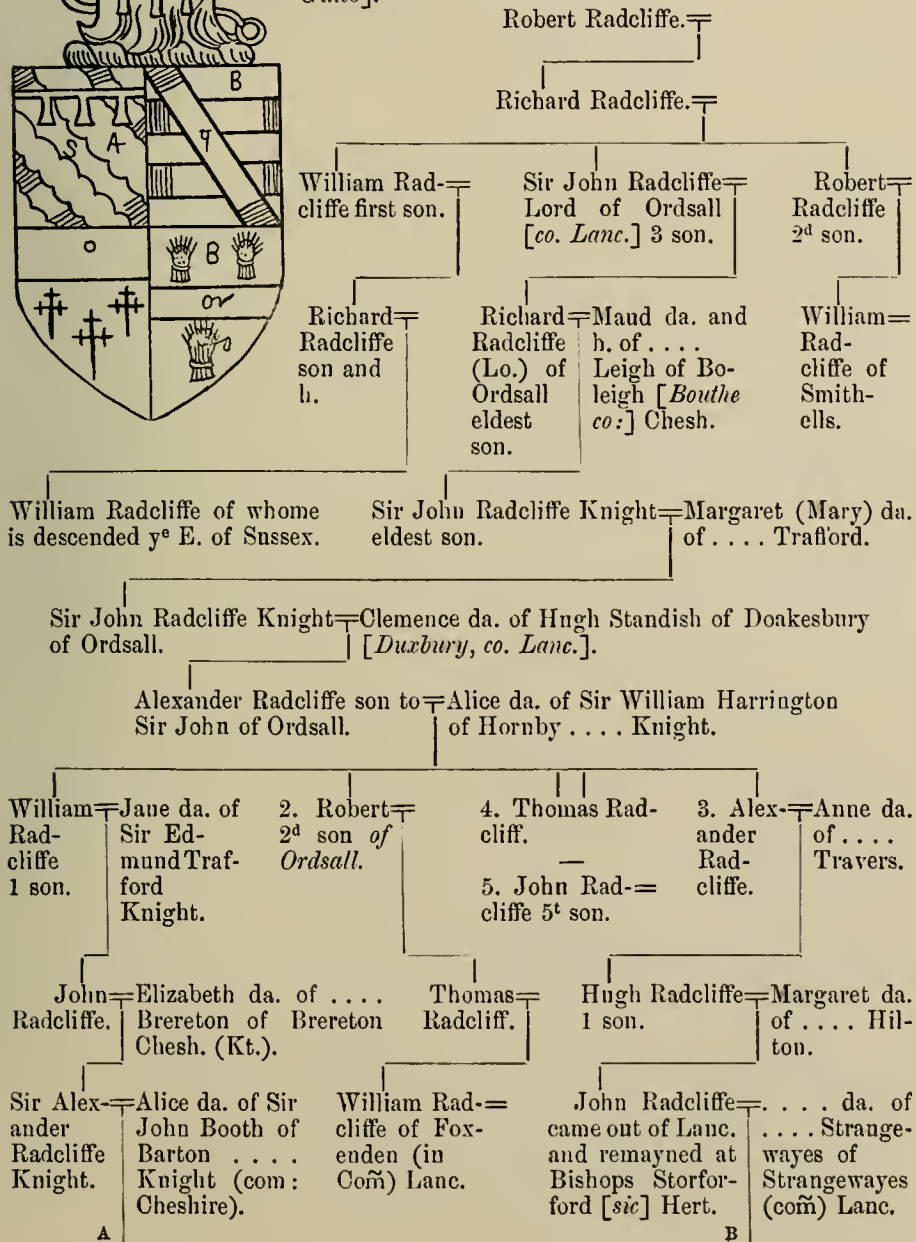 Robert Radcliffe.
Richard Radcliffe.
B
S A
o
B
or
William Rad-
cliffe first son.
Sir John Radcliffe
Lord of Ordsall
[co. Lanc.] 3 son.
Robert
Radcliffe
2d son.
Richard
Radcliffe
son and
h.
Richard
Radcliffe
(Lo.) of
Ordsall
eldest
son.
Maud da. and
h. of . . . .
Leigh of Bo-
leigh [Bouthe
co:] Chesh.
William
Rad-
cliffe of
Smith-
ells.
William Radcliffe of whome
is descended ye E. of Sussex.
Sir John Radcliffe Knight
eldest son.
Margaret (Mary) da.
of . . . . Trafford.
Sir John Radcliffe Knight
of Ordsall.
Clemence da. of Hugh Standish of Doakesbury
[Duxbury, co. Lanc.].
Alexander Radcliffe son to
Sir John of Ordsall.
Alice da. of Sir William Harrington
of Hornby . . . . Knight.
William
Rad-
cliffe
1 son.
Jane da. of
Sir Ed-
mund Traf-
ford
Knight.
2. Robert
2d son of
Ordsall.
4. Thomas Rad-
cliff.
—
5. John Rad-
cliffe 5t son.
3. Alex-
ander
Rad-
cliffe.
Anne da.
of . . . .
Travers.
John
Radcliffe.
Elizabeth da. of . . . .
Brereton of Brereton
Chesh. (Kt.).
Thomas
Radcliff.
Hugh Radcliffe
1 son.
Margaret da.
of . . . . Hil-
ton.
Sir Alex-
ander
Radcliffe
Knight.
Alice da. of Sir
John Booth of
Barton . . . .
Knight (com:
Cheshire).
William Rad-
cliffe of Fox-
enden (in
Com̃) Lanc.
John Radcliffe
came out of Lanc.
and remayned at
Bishops Storfor-
ford [sic] Hert.
. . . . da. of
. . . . Strange-
wayes of
Strangewayes
(com̃) Lanc.
A
B